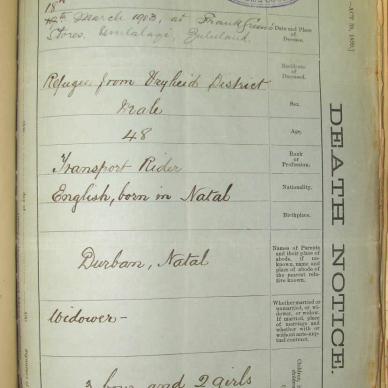 18th
March 1903, at Frank Green's
Stores, Emtalagi, Zululand.
Date and Place
of Decease.
Refugee from Vryheid District
Residence
of
Deceased.
Male
Sex.
48
Age.
Transport Rider
Rank
or
Profession.
English, born in Natal
Nationality.
Birthplace.
Durban, Natal
Names of Parents
and their place of
abode, if un-
known, name and
place of abode of
the nearest rela-
tive known.
Widower -
Whether married or
unmarried, or wi-
dower, or widow.
If married, place
of marriage and
whether with or
without ante-nup-
tial contract.
3 boys and 2 girls
DEATH NOTICE.